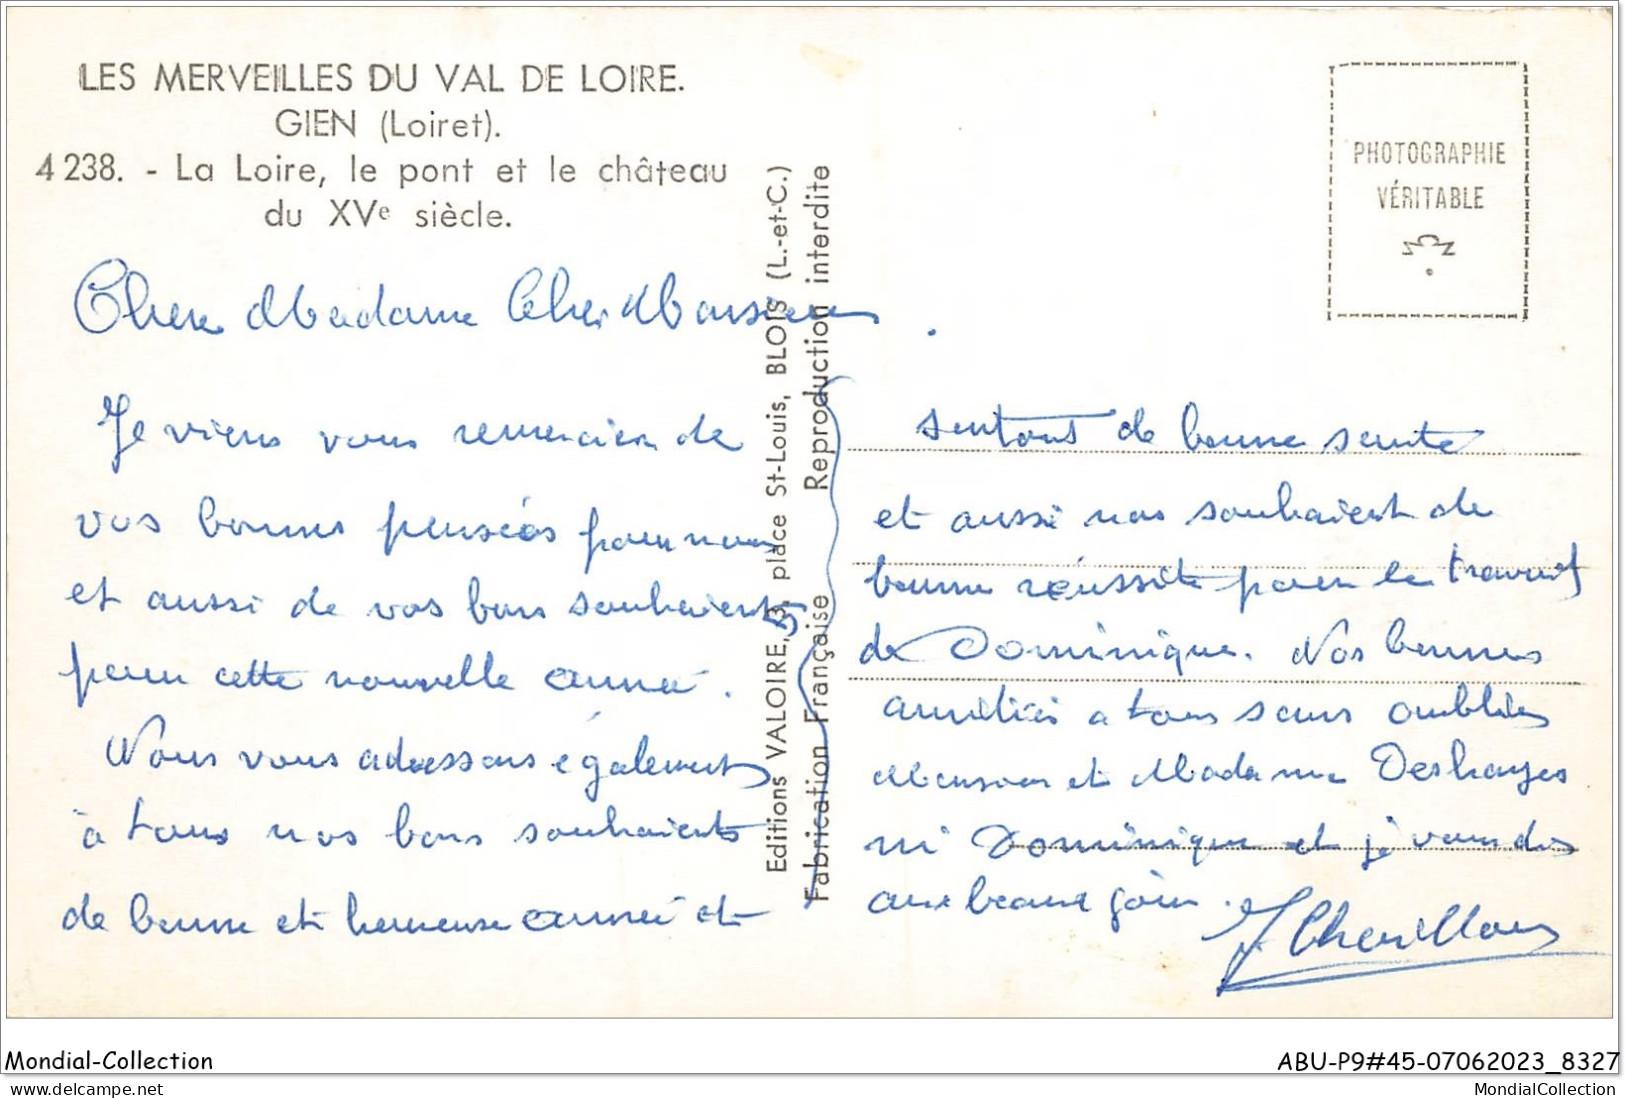 LES MERVEILLES DU VAL DE LOIRE.
GIEN (Loiret).
4 238. - La Loire, le pont et le château
du XVe siècle.
Editions VALOIRE, 3, place St-Louis, BLOIS (L.-et-C.)
Fabrication Française Reproduction interdite
PHOTOGRAPHIE
VÉRITABLE
Chere Madame Cher Monsieur
Je viens vous remercier de
vos bonnes pensées pour nous
et aussi de vos bons souhaients
pour cette nouvelle année.
Nous vous adressons également
à tous nos bons souhaients
de bonne et heureuse année et
surtout de bonne sante
et aussi nos souhaient de
bonne réussite pour le travail
de Dominique. Nos bonnes
amitiés a tous sans oublier
Monsieur et Madame Deshayes
ni Dominique et
Mondial-Collection
ABU-P9#45-07062023_8327
https://www.delcampe.net
MondialCollection